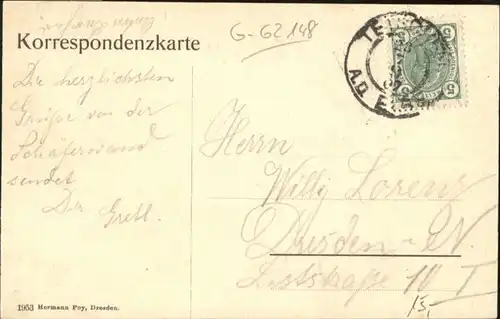 G-G2148
Korrespondenzkarte
TETSCHEN
A.D. E
5 5
Die herzlichsten
Grüße von der
Schäferwand
sendet
Die Gretl.
Herrn
Willy Lorenz
Dresden - N.
Liststraße 10 I
15,-
1953 Hermann Poy, Dresden.